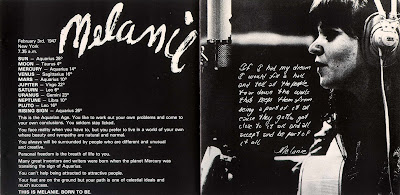 Melanie
February 3rd, 1947
New York
7.35 a.m.
SUN — Aquarius
MOON — Taurus
MERCURY — Aquarius 14°
VENUS — Sagittarius
MARS — Aquarius
JUPITER — Virgo
SATURN — Leo
URANUS — Gemini
NEPTUNE — Libra 10°
PLUTO — Leo
RISING SIGN — Aquarius
This is the Aquarian Age. You like to work out your own problems and come to
your own conclusions. You seldom stay licked.
You face reality when you have to, but you prefer to live in a world of your own
where beauty and sympathy are natural and normal.
You always will be surrounded by people who are different and unusual
and creative.
Personal freedom is the breath of life to you.
Many great inventors and writers were born when the planet Mercury was
transiting the sign of Aquarius.
You can't help being attracted to attractive people.
Your feet are on the ground but your path is one of celestial ideals and
much success.
THIS IS MELANIE. BORN TO BE.
If I had my dream
I would fix a hall
and tell all the people
tear down the walls
that keep them from
being a part of it all
cause they gotta get
close to it all and all
accept and be part of
it all
Melanie